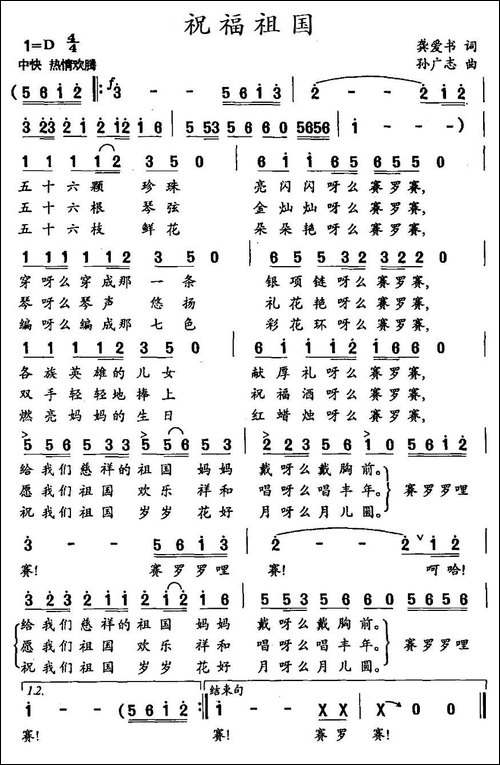 祝福祖国
1=D 4/4
龚爱书 词
中快 热情欢腾
孙广志 曲
(5 6 i 2 ‖: f 3 - - 5 6 i 3 | 2 - - 2 i 2 |
3 23 2 1 2 12 1 6 | 5 53 5 6 6 0 5656 | i - - ) |
1 1 1 1 2 3 5 0 | 6 i i 6 5 6 5 5 0 |
五十六颗 珍珠 亮闪闪呀么赛罗赛,
五十六根 琴弦 金灿灿呀么赛罗赛,
五十六枝 鲜花 朵朵艳呀么赛罗赛,
1 1 1 1 1 2 3 5 0 | 6 5 5 3 2 3 2 2 0 |
穿呀么穿成那一条 银项链呀么赛罗赛,
琴呀么琴声 悠扬 礼花艳呀么赛罗赛,
编呀么编成那七色 彩花环呀么赛罗赛,
1 1 1 1 1 2 3 5 0 | 6 i i 2 i 6 6 0 |
各族英雄的儿女 献厚礼呀么赛罗赛,
双手轻轻地捧上 祝福酒呀么赛罗赛,
燃亮妈妈的生日 红蜡烛呀么赛罗赛,
5 5 6 5 3 5 5 6 5 3 | 2 2 3 5 6 1 0 5 5 6 5 |
给我们慈祥的祖国 妈妈 戴呀么戴胸前。
愿我们祖国 欢乐 祥和 唱呀么唱丰年。 赛罗罗哩
祝我们祖国 岁岁 花好 月呀么月儿圆。
3 - - 5 6 i 3 | 2 - - 2 ∨ i 2 |
赛! 赛罗罗哩 赛! 呵哈!
3 2 3 2 1 2 i 2 i 6 | 5 5 3 5 6 6 0 5 6 5 6 |
给我们慈祥的祖国 妈妈 戴呀么戴胸前。
愿我们祖国 欢乐 祥和 唱呀么唱丰年。 赛罗罗哩
祝我们祖国 岁岁 花好 月呀么月儿圆。
1.2. 结束句
i - - (5 6 i 2 :‖ i - - X X | X 0 0 ‖
赛! 赛! 赛罗 赛!